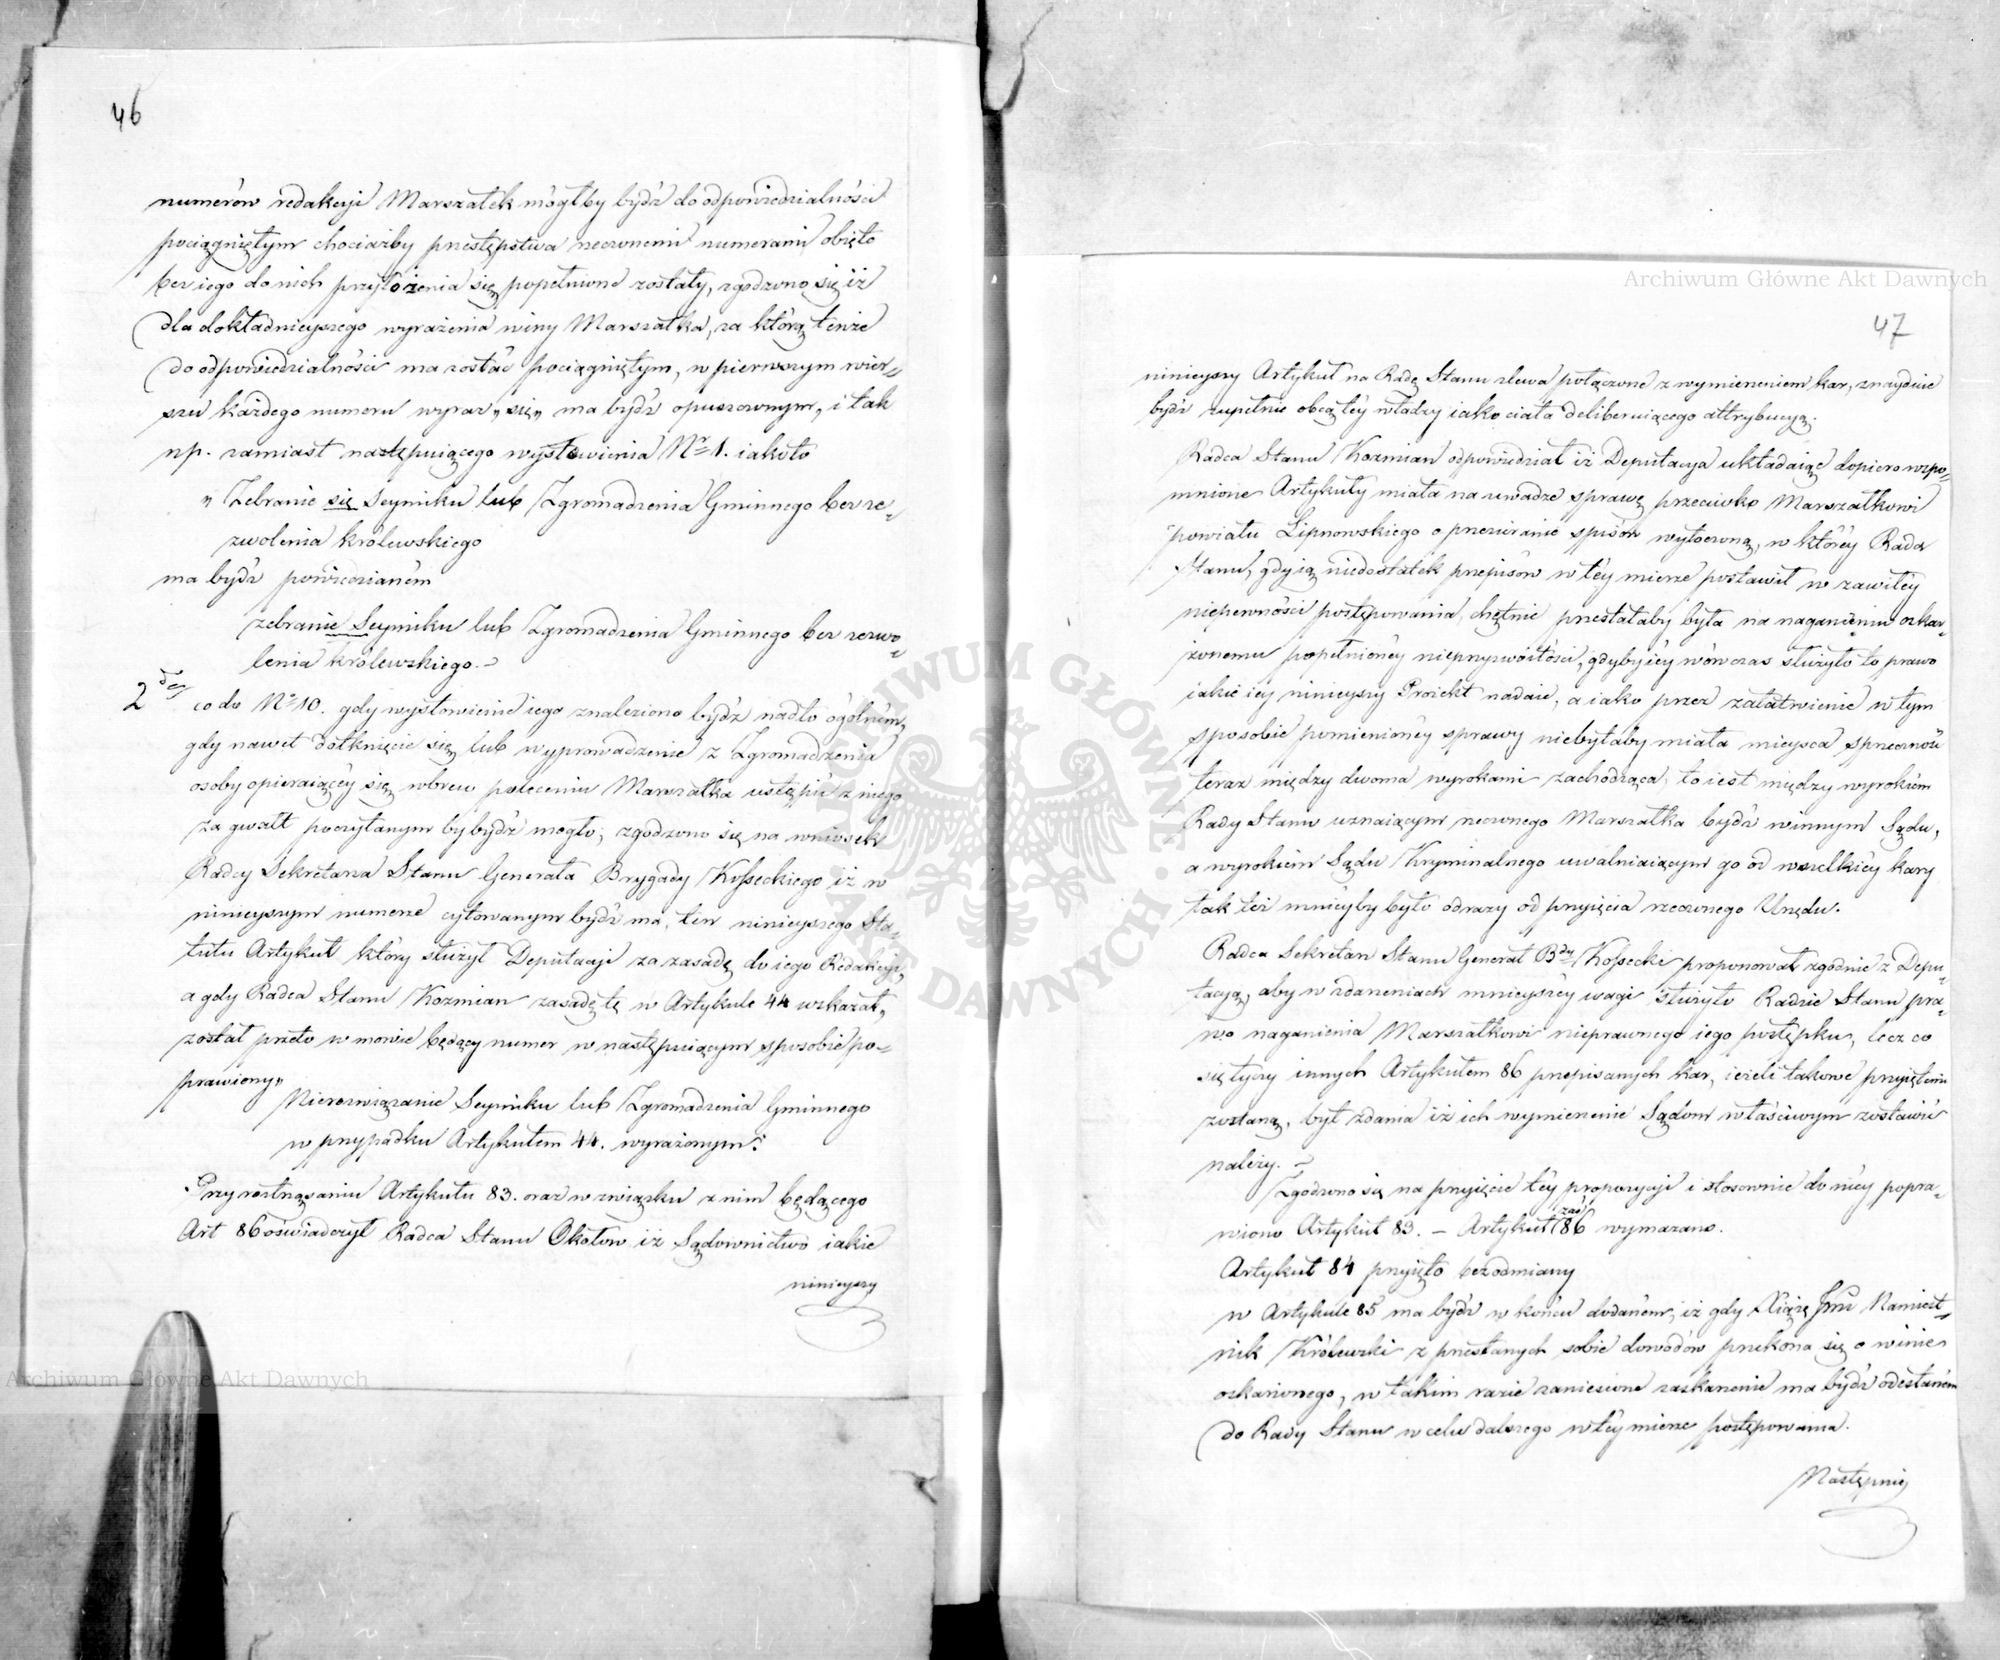 46
numerów redakcyi Marszałek mógłby bydź do odpowiedzialności
pociągniętym chociażby przestępstwa rzeczonemi numerami obięto
bez iego do nich przyłożenia się popełnione zostały, zgodzono się iż
dla dokładnieyszego wyrażenia winy Marszałka, za którą tenże
do odpowiedzialności ma zostać pociągniętym, w pierwszym wier-
szu każdego numeru wyraz „się„ ma bydź opuszczonym, i tak
np. zamiast następuiącego wysłowienia No 1. iakoto
„ Zebranie się Seymiku lub Zgromadzenia Gminnego bez ze-
zwolenia królewskiego
ma bydź powiedzianém
zebranie Seymiku lub Zgromadzenia Gminnego bez zezwo-
lenia królewskiego.
2do co do No 10. gdy wysłowienie iego znaleziono bydź nadto ogólném,
gdy nawet dotknięcie się lub wyprowadzenie z Zgromadzenia
osoby opieraiącéy się wbrew poleceniu Marszałka ustąpić z niego
za gwałt poczytanym by bydź mogło; zgodzono się na wniosek
Radcy Sekretarza Stanu Generała Brygady Kosseckiego iż w
ninieyszym numerze cytowanym bydź ma, ten ninieyszego Sta-
tutu Artykuł który służył Deputacyi za zasadę do iego Redakcyi,
a gdy Radca Stanu Kozmian zasadę tę w Artykule 44 wskazał,
został przeto w mowie będący numer w następuiącym sposobie po-
prawiony„
Nierozwiązanie Seymiku lub Zgromadzenia Gminnego
w przypadku Artykułem 44. wyrażonym:
Przy roztrząsaniu Artykułu 83. oraz w związku z nim będącego
Art 86 oświadczył Radca Stanu Okołow iż Sądownictwo iakie
ninieyszy
Archiwum Główne Akt Dawnych
47
ninieyszy Artykuł na Radę Stanu zlewa połączone z wymierzeniem kar, znayduie
bydź zupełnie obcą téy władzy iako ciała deliberuiącego attrybucyą.
Radca Stanu Kozmian odpowiedział iż Deputacya układaiąc dopiero wspo-
mnione Artykuły miała na uwadze sprawę przeciwko Marszałkowi
powiatu Lipnowskiego o przezieranie spisów wytoczoną, w któréy Rada
Stanu, gdy ią niedostatek przepisów w téy mierze postawił w zawiłéy
niepewności postępowania, chętnie przestałaby była na naganieniu oskar-
żonemu popełnionéy nieprzyzwoitości, gdyby iéy wówczas służyło to prawo
iakie iey ninieyszy Proiekt nadaie, a iako przez załatwienie w tym
sposobie pomienionéy sprawy niebyłaby miała mieysca sprzeczność
teraz między dwoma wyrokami zachodząca, to iest między wyrokiem
Rady Stanu uznaiącym rzeczonego Marszałka bydź winnym Sądu,
a wyrokiem Sądu Kryminalnego uwalniaiącym go od wszelkiéy kary
tak też mniéy by było odrazy od przyięcia rzeczonego Urzędu.
Radca Sekretarz Stanu Generał Bdy Kossecki proponował zgodnie z Depu-
tacyą, aby w zdarzeniach mnieyszéy wagi służyło Radzie Stanu pra-
wo naganienia Marszałkowi nieprawnego iego postępku, lecz co
się tyczy innych Artykułem 86 przepisanych kar, ieżeli takowe przyiętemi
zostaną, był zdania iż ich wymierzenie Sądom właściwym zostawić
należy.
Zgodzono się na przyięcie téy propozycyi i stosownie do niéy popra-
wiono Artykuł 83. – Artykuł zaś 86 wymazano.
Artykuł 84 przyięto bez odmiany
w Artykule 85 ma bydź w końcu dodaném, iż gdy Xiążę Jmć Namiest-
nik Królewski z przesłanych sobie dowodów przekona się o winie
oskarżonego, w takim razie zaniesione zaskarżenie ma bydź odesłaném
do Rady Stanu w celu dalszego w téy mierze postępowania.
Następnie
Archiwum Główne Akt Dawnych
ARCHIWUM GŁÓWNE AKT DAWNYCH